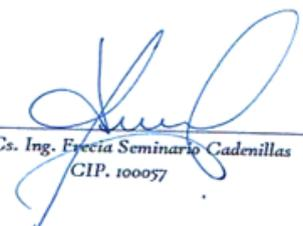 Cs. Ing. Erecia Seminario Cadenillas
CIP. 100057